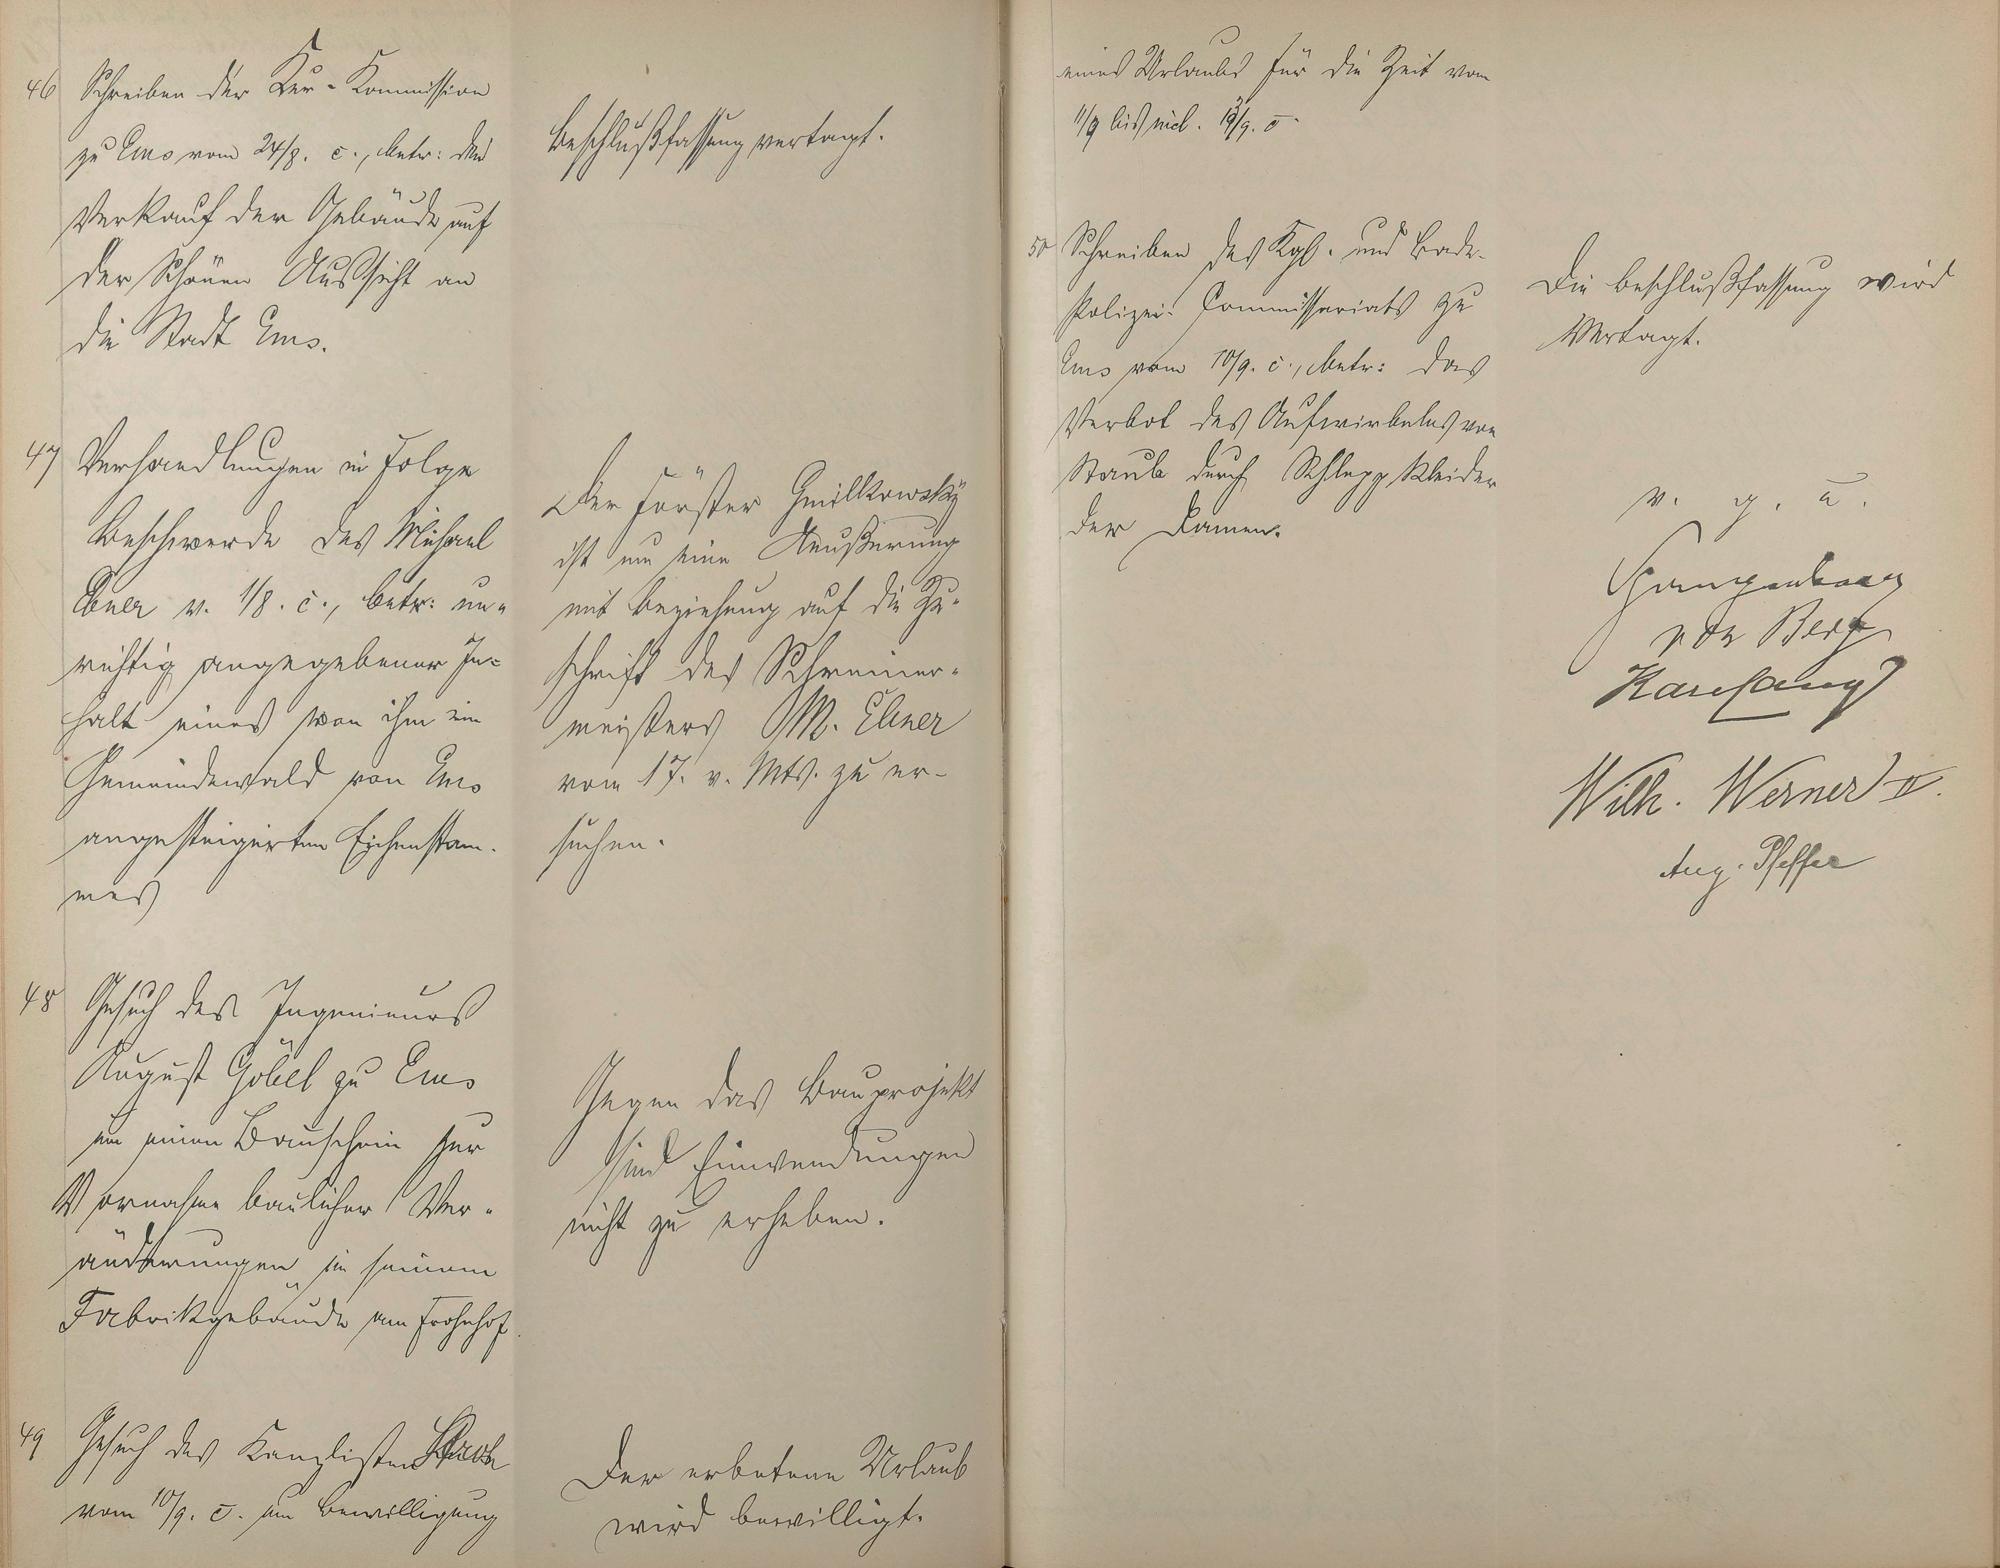 46 Schreiben der Kur-Kommission
zu Ems vom 24/8. c., betr: den
Verkauf der Gebäude auf
der Schönen Aussicht an
die Stadt Ems.
Beschlußfassung vertagt.
47 Verhandlungen in Folge
Beschwerde des Michael
Ebner v. 1/8. c., betr: un-
richtig angegebener In-
halt eines von ihm im
Gemeindewald von Ems
angesteigerten Eichenstam-
mes
Der Förster Gmilkowsky
ist um eine Äeußerung
mit Beziehung auf die Zu-
schrift des Schreiner-
meisters M. Ebner
vom 17. v. Mts. zu er-
suchen.
48 Gesuch des Ingenieurs
August Göbel zu Ems
um einen Bauschein zur
Vornahme baulicher Ver-
änderungen in seinem
Fabrikgebäude am Frohnhof.
Gegen das Bauprojekt
sind Einwendungen
nicht zu erheben.
49 Gesuch des Kanzlisten
vom 10/9. c. um Bewilligung
Der erbetene Urlaub
wird bewilligt.
eines Urlaubs für die Zeit vom
11/9 bis incl. /9. c.
50 Schreiben des Kgl. und Bade-
Polizei-Commissariats zu
Ems vom 10/9. c., betr: das
Verbot des Aufwirbelns von
Staub durch Schleppkleider
der Damen.
Die Beschlußfassung wird
Vertagt.
v. g. u.
von Berg
Wilh. Werner II.
Aug. Pfeffer